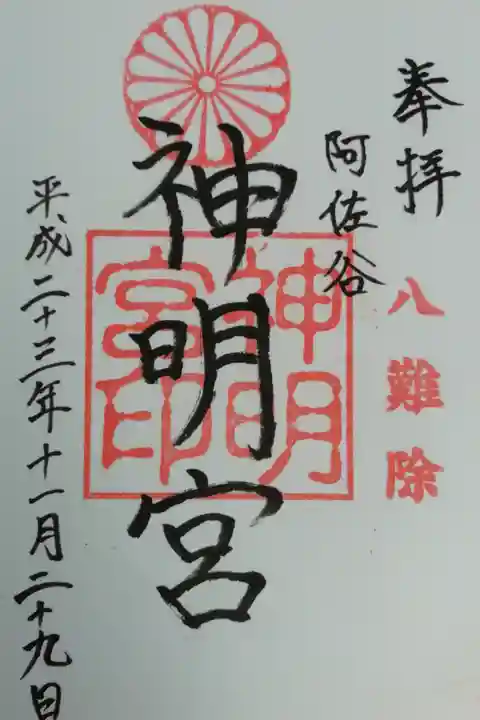 奉拝
八難除
阿佐谷
神明宮
神明宮印
平成二十三年十一月二十九日